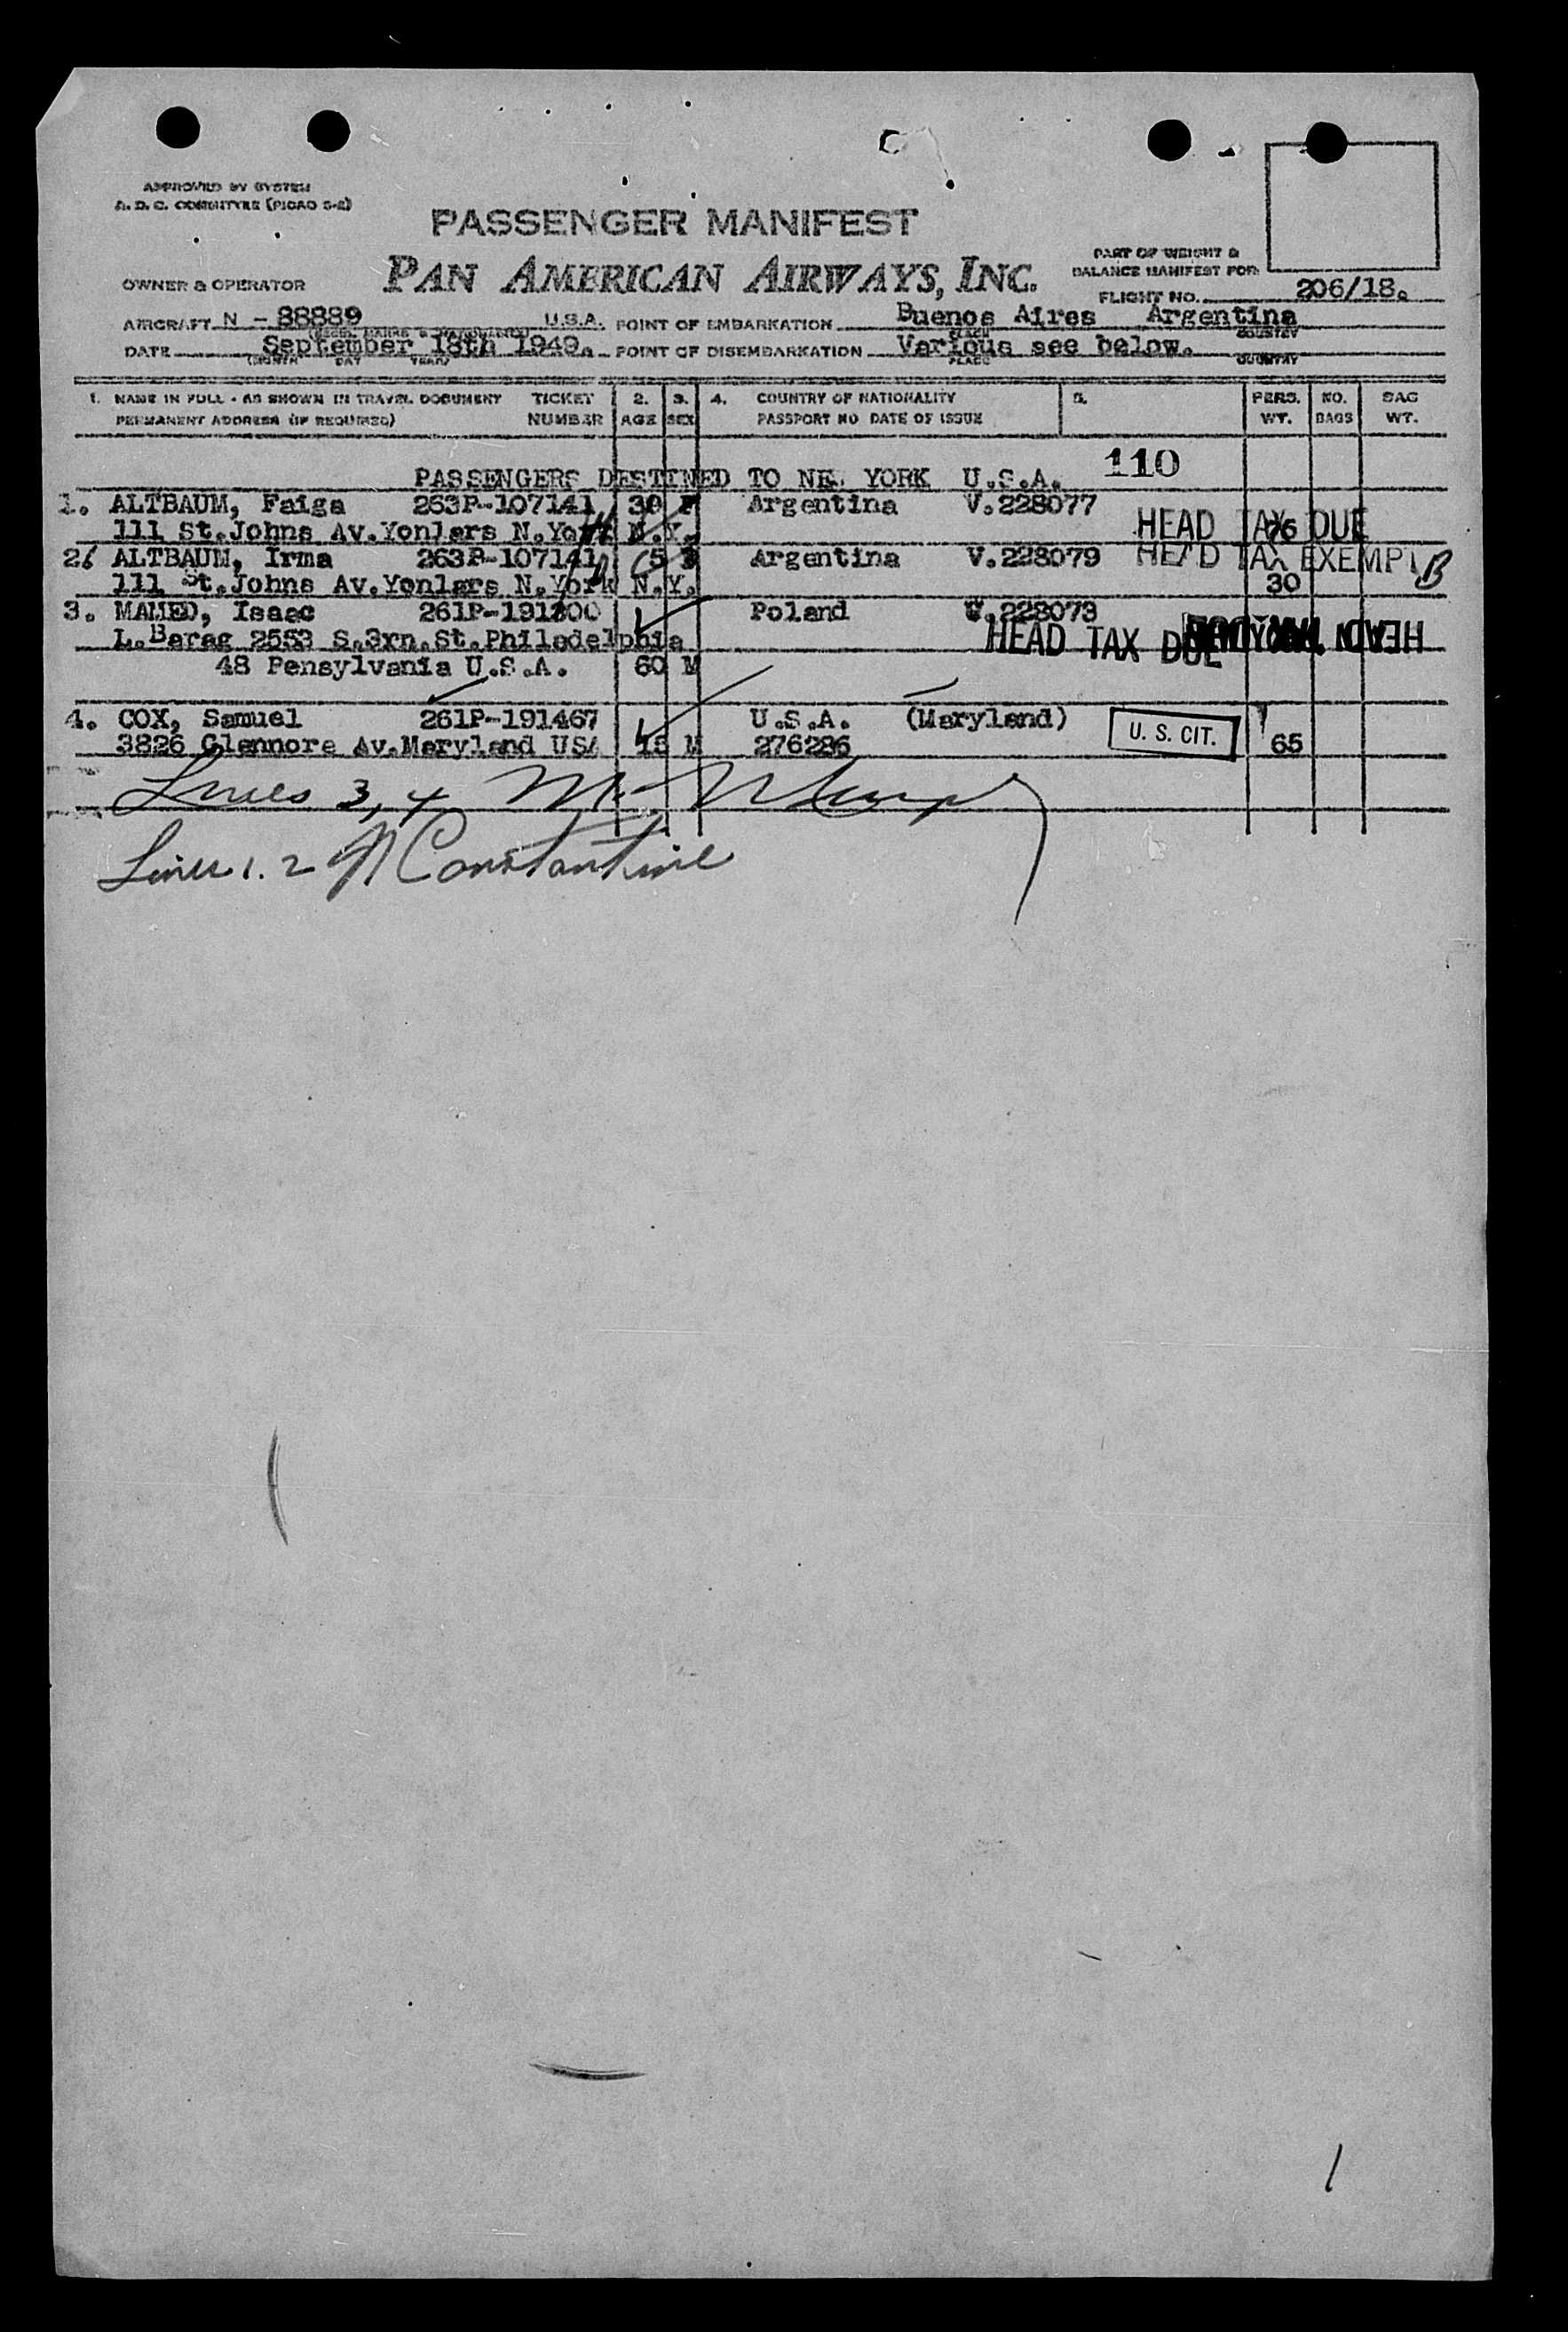 APPROVED BY SYSTEM
A. D. C. COMMITTEE (PICAO S-2)
PASSENGER MANIFEST
PAN AMERICAN AIRWAYS, INC.
OWNER & OPERATOR
PART OF WEIGHT &
BALANCE MANIFEST FOR
FLIGHT NO. 206/18.
AIRCRAFT N - 88889 U.S.A. POINT OF EMBARKATION Buenos Aires Argentina
PLACE COUNTRY
DATE September 18th 1949. POINT OF DISEMBARKATION Various see below.
MONTH DAY YEAR PLACE COUNTRY
1. NAME IN FULL - AS SHOWN IN TRAVEL DOCUMENT TICKET 2. 3. 4. COUNTRY OF NATIONALITY 5. PERS. NO. BAG
PERMANENT ADDRESS (IF REQUIRED) NUMBER AGE SEX PASSPORT NO DATE OF ISSUE WT. BAGS WT.
PASSENGERS DESTINED TO NEW YORK U.S.A. 110
1. ALTBAUM, Faiga 263P-107141 30 F Argentina V.228077
111 St.Johns Av.Yonlers N.York N.Y. HEAD TAX DUE 76
2. ALTBAUM, Irma 263P-107141 5 F Argentina V.228079 HEAD TAX EXEMPT B
111 St.Johns Av.Yonlers N.York N.Y. 30
3. MAMED, Isaac 261P-191800 Poland V.228073
L.Barag 2553 S.3rn.St.Philadelphia HEAD TAX DUE
48 Pensylvania U.S.A. 60 M
4. COX, Samuel 261P-191467 U.S.A. (Maryland)
3826 Glennore Av.Maryland USA 18 M 276286 U. S. CIT. 65
Lines 3, 4
Lines 1. 2 Constantine
1